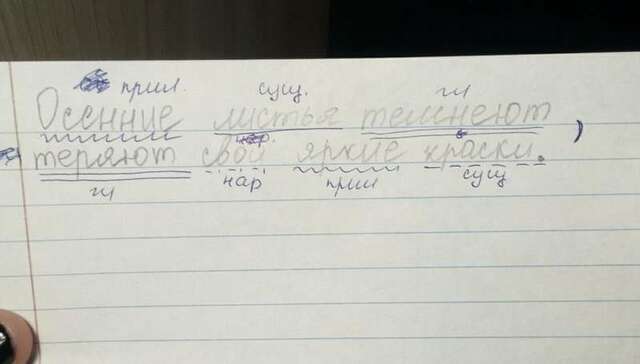 прил. сущ. гл
Осенние листья темнеют,
теряют свои яркие краски.
гл нар прил сущ